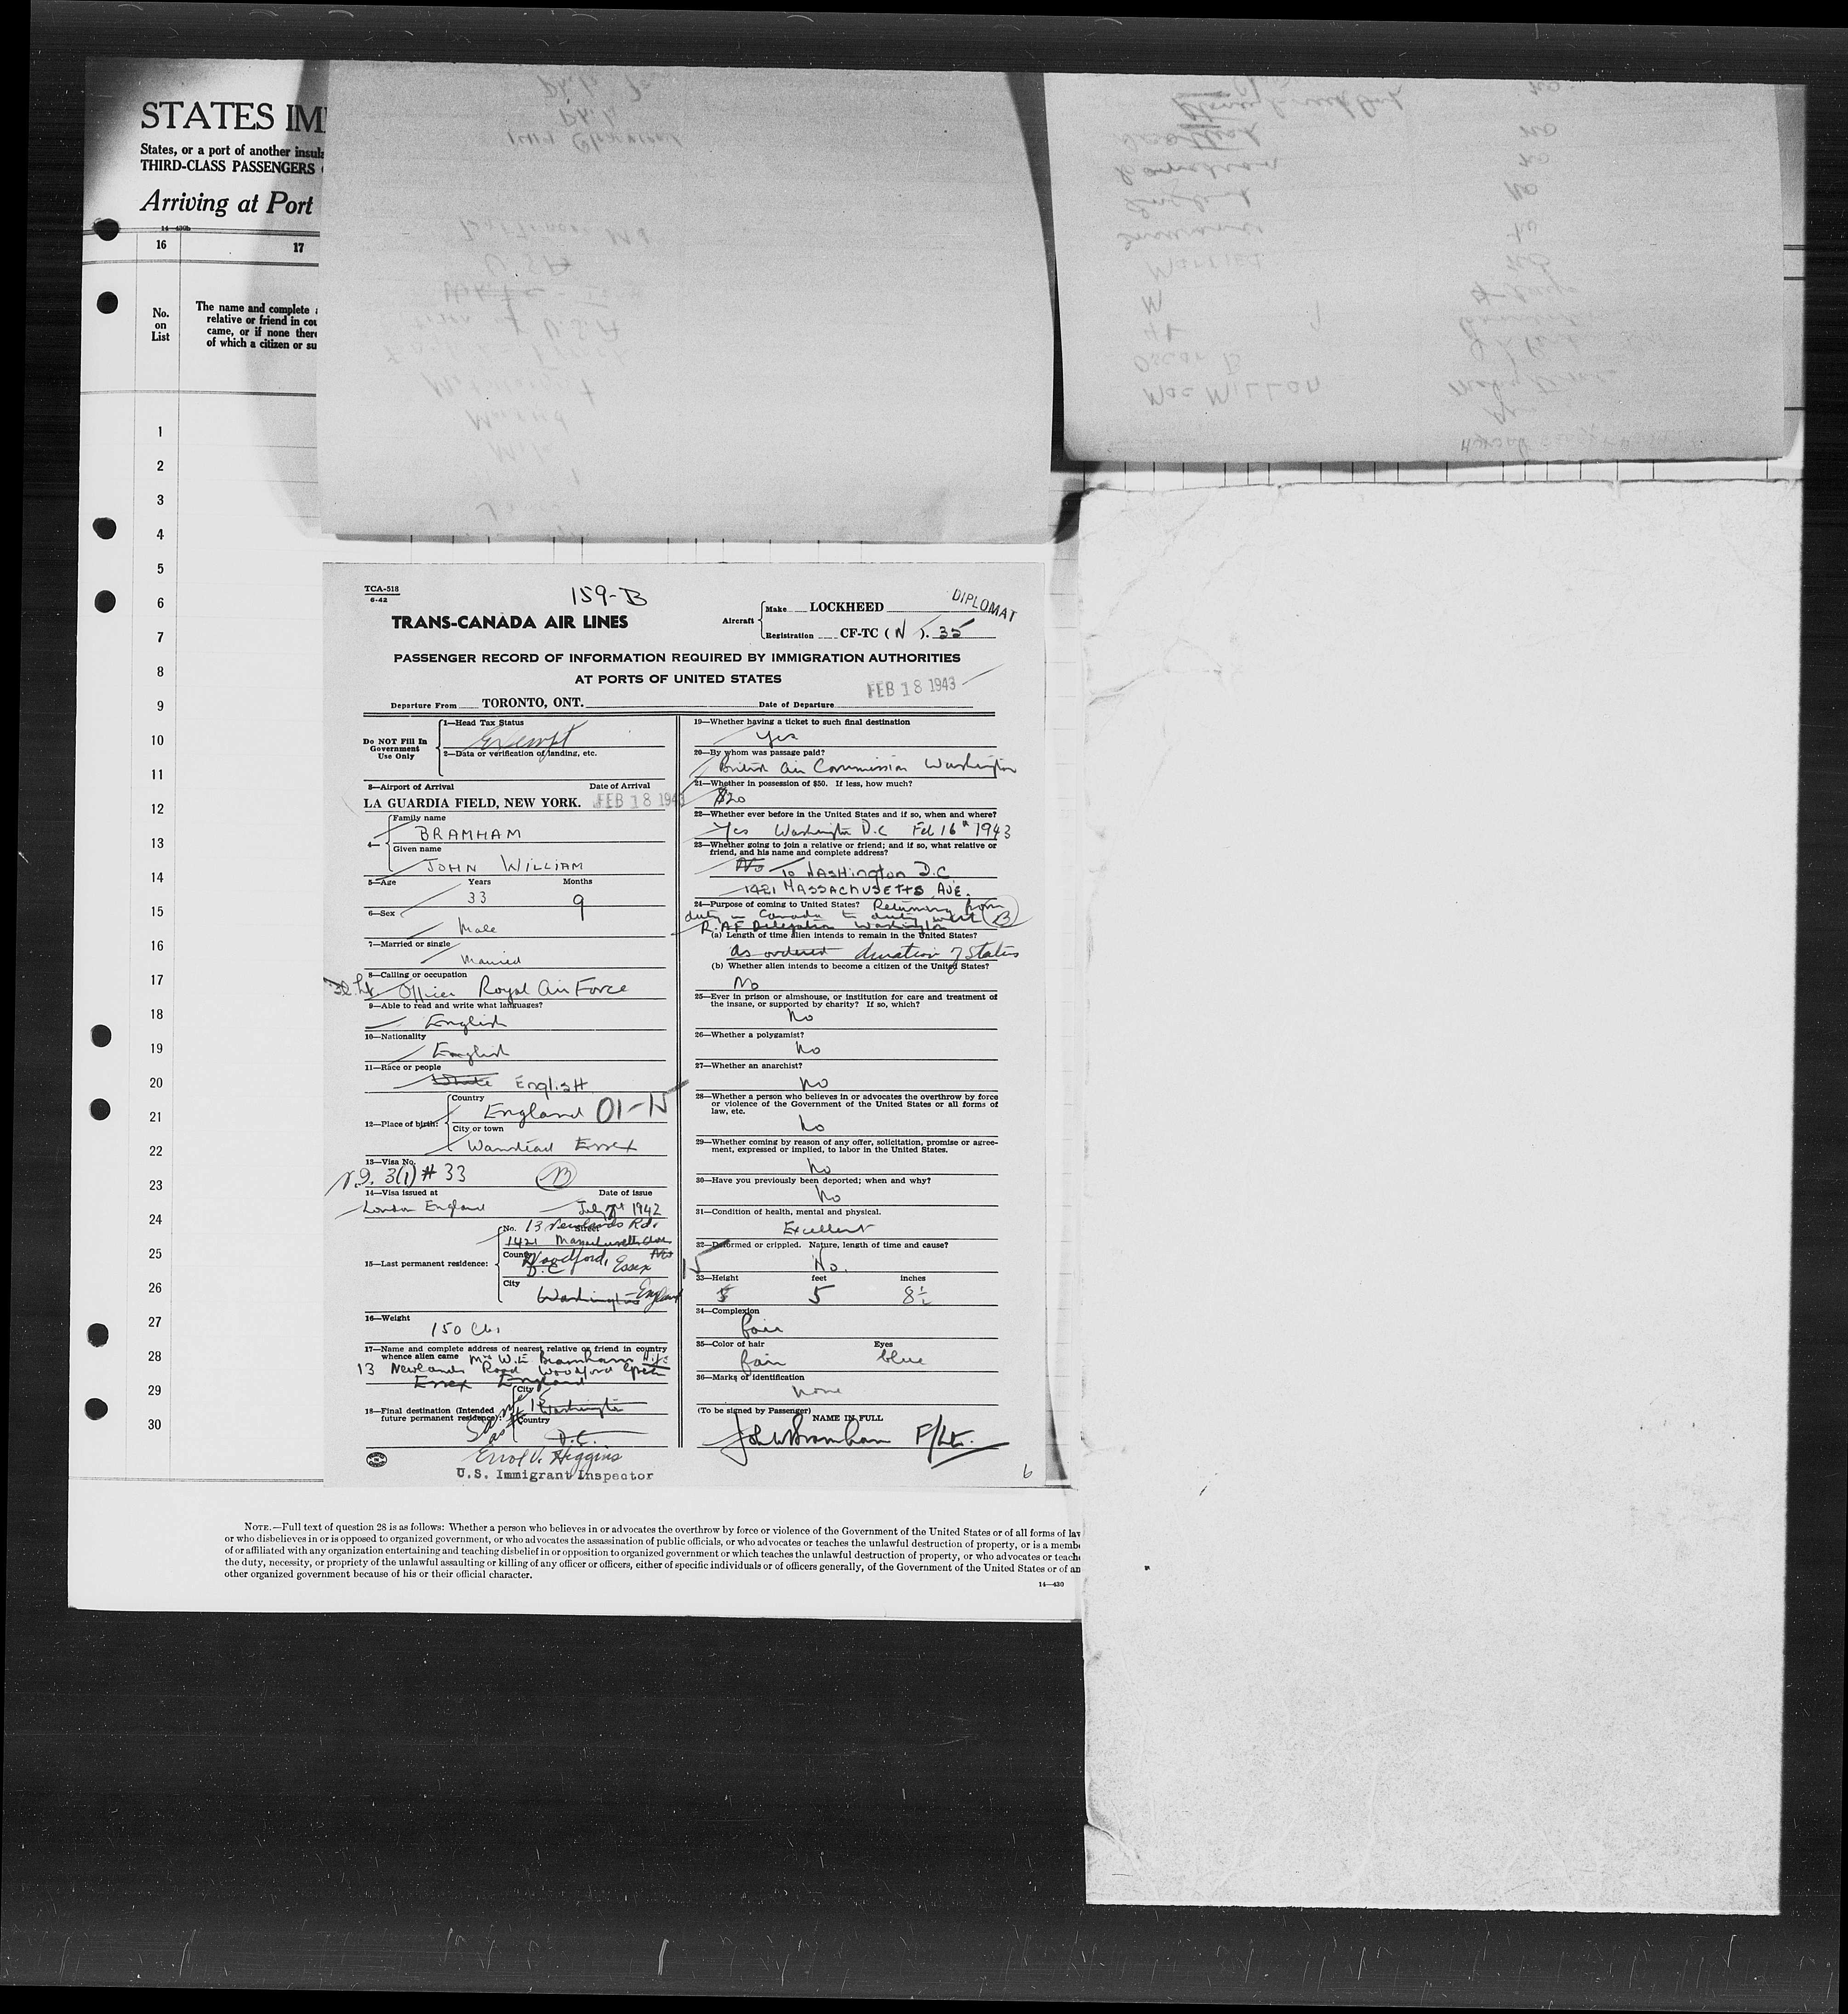 STATES IM
States, or a port of another insula
THIRD-CLASS PASSENGERS
Arriving at Port
14—430b
16 17
No. on List
The name and complete
relative or friend in cou
came, or if none there
of which a citizen or su
1
2
3
4
5
6
7
8
9
10
11
12
13
14
15
16
17
18
19
20
21
22
23
24
25
26
27
28
29
30
MacMillan
Oscar B
41
M
Married
TCA-518
6-42
159-B
DIPLOMAT
TRANS-CANADA AIR LINES
Aircraft
Make LOCKHEED
Registration CF-TC ( N ). 35
PASSENGER RECORD OF INFORMATION REQUIRED BY IMMIGRATION AUTHORITIES
AT PORTS OF UNITED STATES
FEB 18 1943
Departure From TORONTO, ONT. Date of Departure
Do NOT Fill In Government Use Only
1—Head Tax Status
Exempt
2—Data or verification of landing, etc.
3—Airport of Arrival Date of Arrival
LA GUARDIA FIELD, NEW YORK. FEB 18 1943
4— Family name
BRAMHAM
Given name
JOHN WILLIAM
5—Age Years Months
33 9
6—Sex
Male
7—Married or single
Married
8—Calling or occupation
Officer Royal Air Force
9—Able to read and write what languages?
English
10—Nationality
English
11—Race or people
White English
12—Place of birth:
Country
England 01-15
City or town
Wanstead Essex
13—Visa No.
3(1) # 33 B
14—Visa issued at Date of issue
London England July 7th 1942
15—Last permanent residence:
No. 13 Newlands Rd. Street
1421 Massachusetts Ave
County Woodford, Essex
D.C
City Washington England
16—Weight
150 lbs
17—Name and complete address of nearest relative or friend in country
whence alien came Mrs W.E Bramham
13 Newlands Road Woodford Green
Essex England
18—Final destination (Intended
future permanent residence):
City Washington
Country D.C.
Same as # 15
Errol V. Higgins
U.S. Immigrant Inspector
19—Whether having a ticket to such final destination
Yes
20—By whom was passage paid?
British Air Commission Washington
21—Whether in possession of $50. If less, how much?
$20
22—Whether ever before in the United States and if so, when and where?
Yes Washington D.C Feb 16th 1943
23—Whether going to join a relative or friend; and if so, what relative or
friend, and his name and complete address?
No To WASHington D.C
1421 MASSACHUSETTS AVE.
24—Purpose of coming to United States? Returning from
duty in Canada to duty with B
R.A.F Delegation Washington
(a) Length of time alien intends to remain in the United States?
as ordered duration of status
(b) Whether alien intends to become a citizen of the United States?
No
25—Ever in prison or almshouse, or institution for care and treatment of
the insane, or supported by charity? If so, which?
No
26—Whether a polygamist?
No
27—Whether an anarchist?
No
28—Whether a person who believes in or advocates the overthrow by force
or violence of the Government of the United States or all forms of
law, etc.
No
29—Whether coming by reason of any offer, solicitation, promise or agree-
ment, expressed or implied, to labor in the United States.
No
30—Have you previously been deported; when and why?
No
31—Condition of health, mental and physical.
Excellent
32—Deformed or crippled. Nature, length of time and cause?
No.
33—Height feet inches
5 8½
34—Complexion
fair
35—Color of hair Eyes
fair blue
36—Marks of identification
None
(To be signed by Passenger)
NAME IN FULL
John W Bramham F/Lt.
6
NOTE.—Full text of question 28 is as follows: Whether a person who believes in or advocates the overthrow by force or violence of the Government of the United States or of all forms of law
or who disbelieves in or is opposed to organized government, or who advocates the assassination of public officials, or who advocates or teaches the unlawful destruction of property, or is a membe
of or affiliated with any organization entertaining and teaching disbelief in or opposition to organized government or which teaches the unlawful destruction of property, or who advocates or teache
the duty, necessity, or propriety of the unlawful assaulting or killing of any officer or officers, either of specific individuals or of officers generally, of the Government of the United States or of an
other organized government because of his or their official character.
14—430